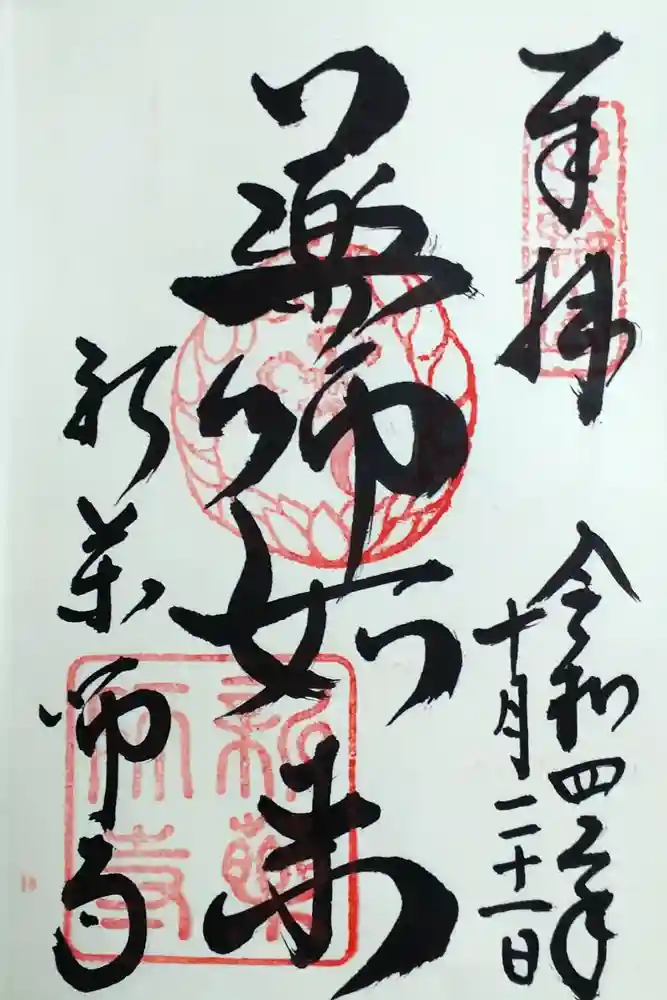 奉拝
令和四年
十月二十一日
薬師如来
新薬師寺
新薬
師寺